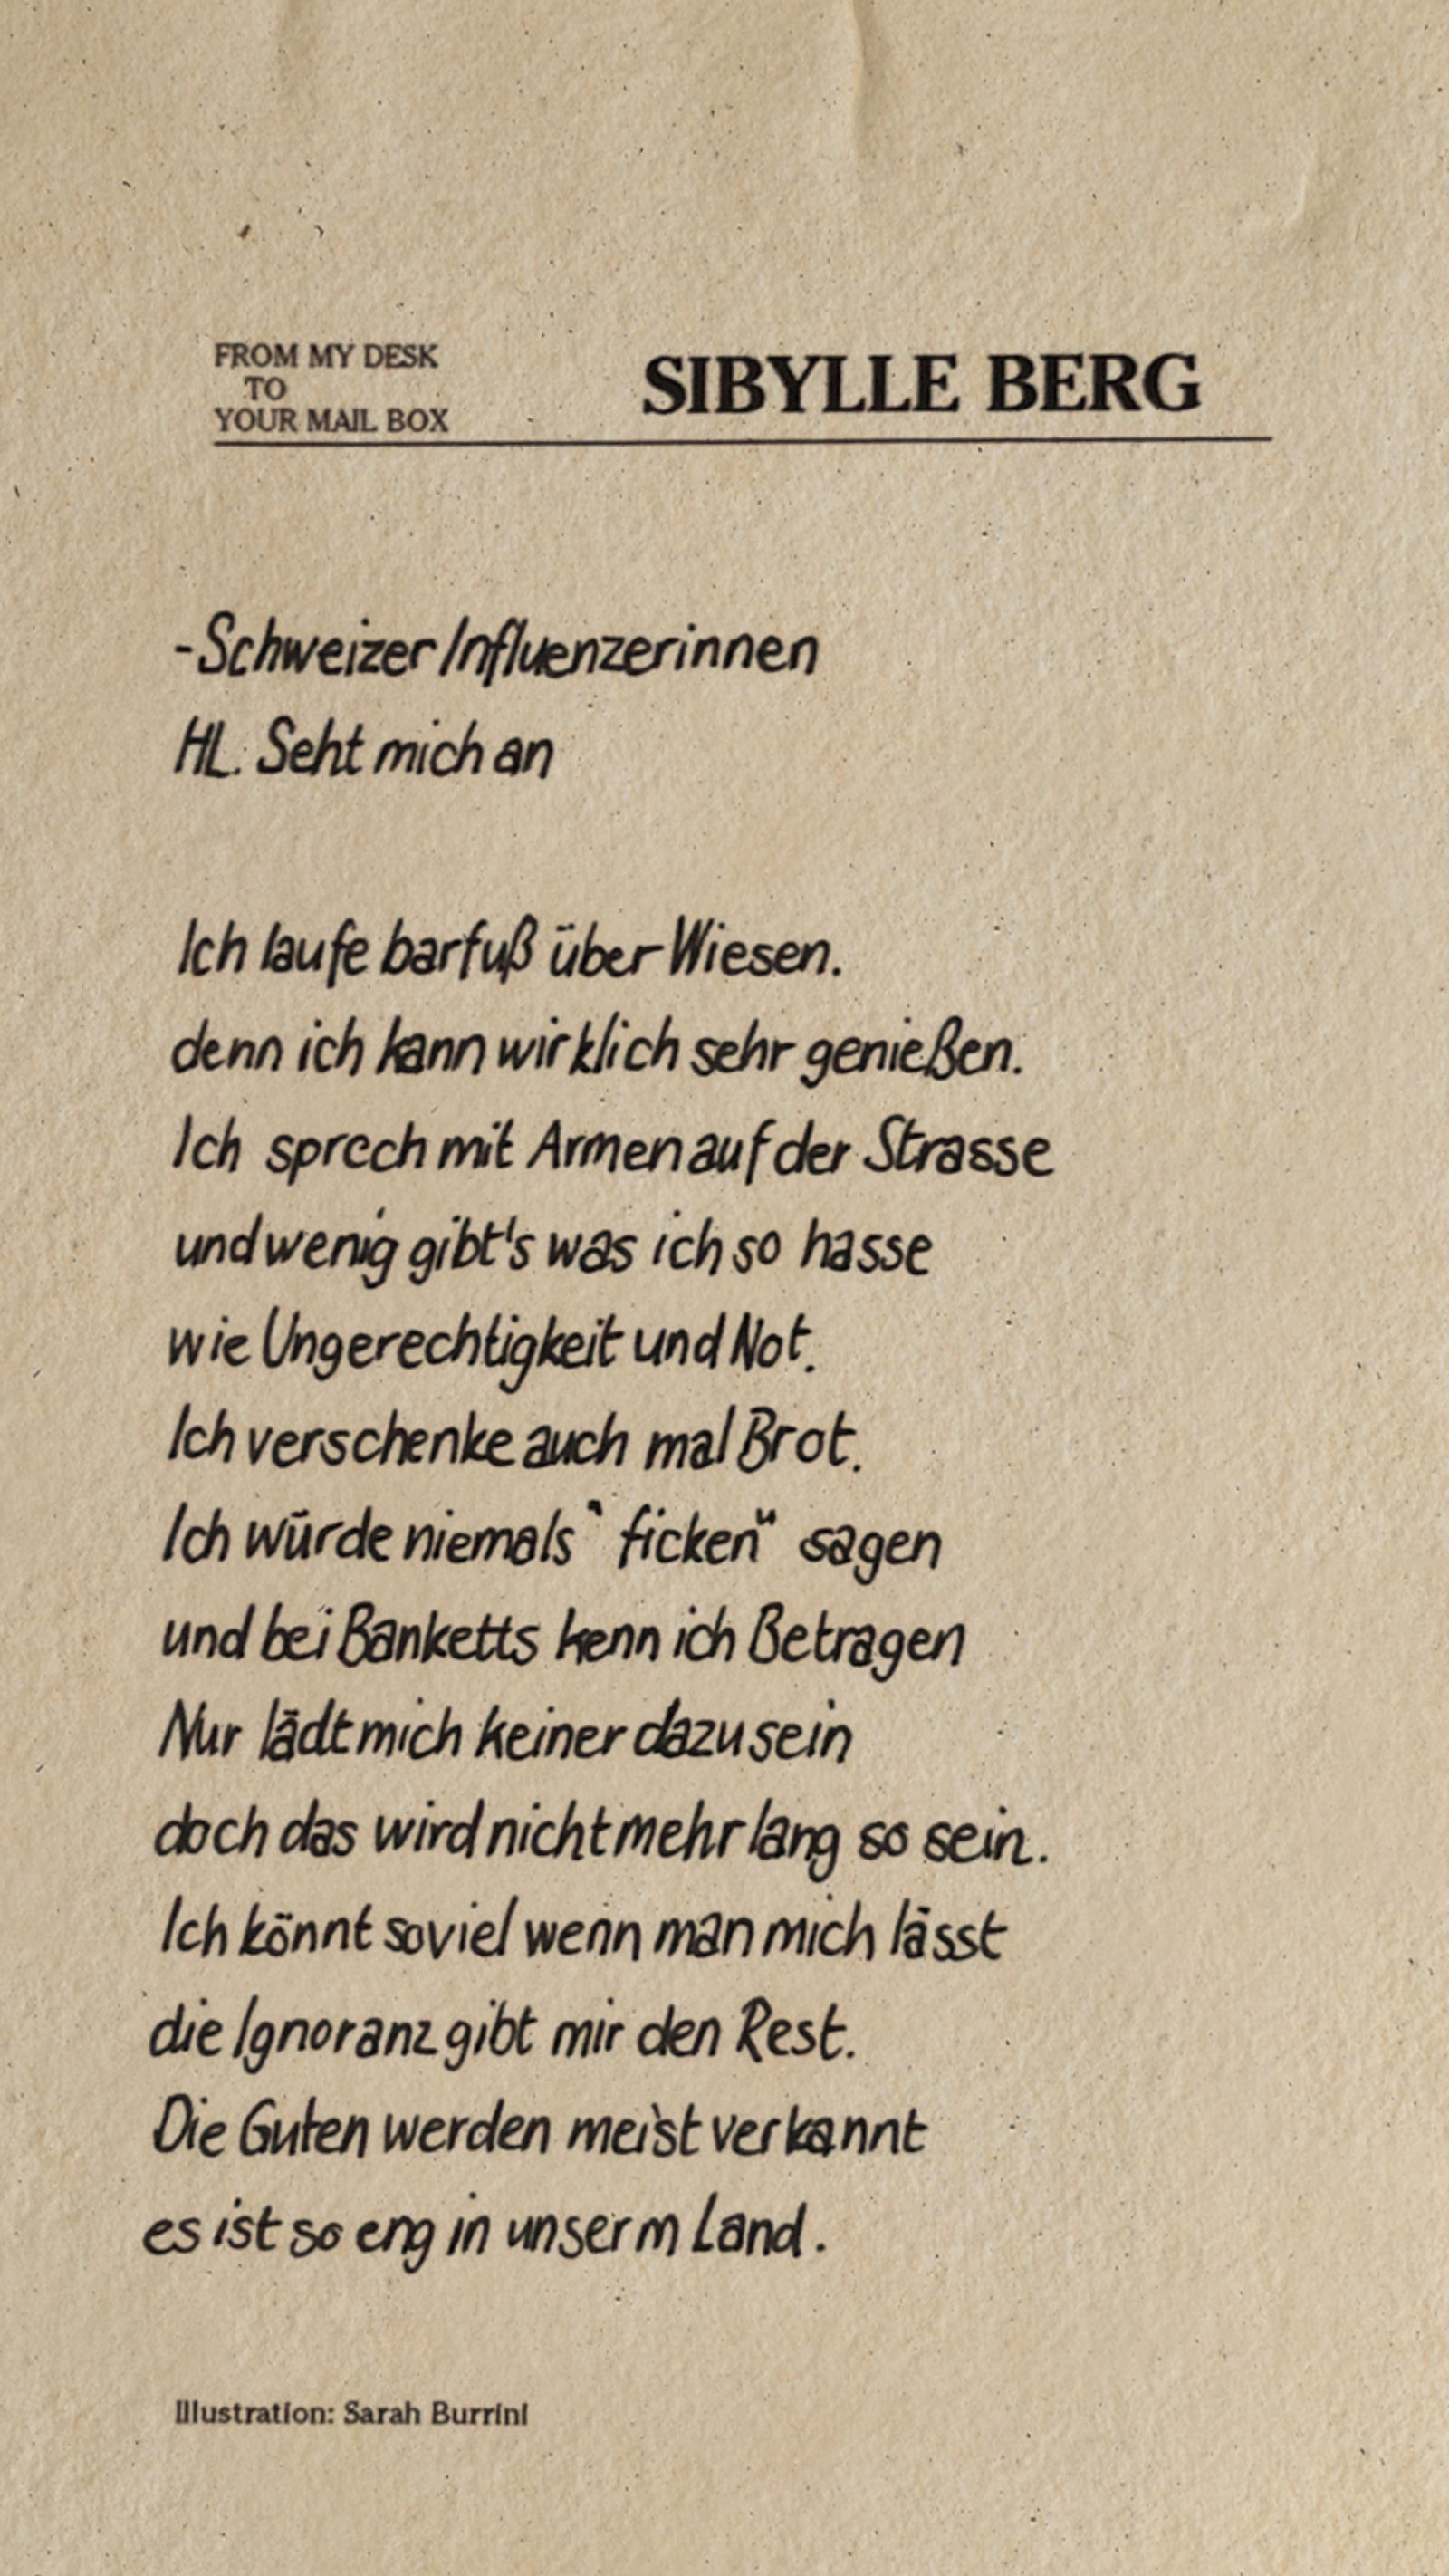 FROM MY DESK
TO
YOUR MAIL BOX
SIBYLLE BERG
-Schweizer Influenzerinnen
HL. Seht mich an
Ich laufe barfuß über Wiesen.
denn ich kann wirklich sehr genießen.
Ich sprech mit Armen auf der Strasse
und wenig gibt's was ich so hasse
wie Ungerechtigkeit und Not.
Ich verschenke auch mal Brot.
Ich würde niemals " ficken" sagen
und bei Banketts kenn ich Betragen
Nur lädt mich keiner dazu sein
doch das wird nicht mehr lang so sein.
Ich könnt soviel wenn man mich lässt
die Ignoranz gibt mir den Rest.
Die Guten werden meist verkannt
es ist so eng in unserm Land.
Illustration: Sarah Burrini